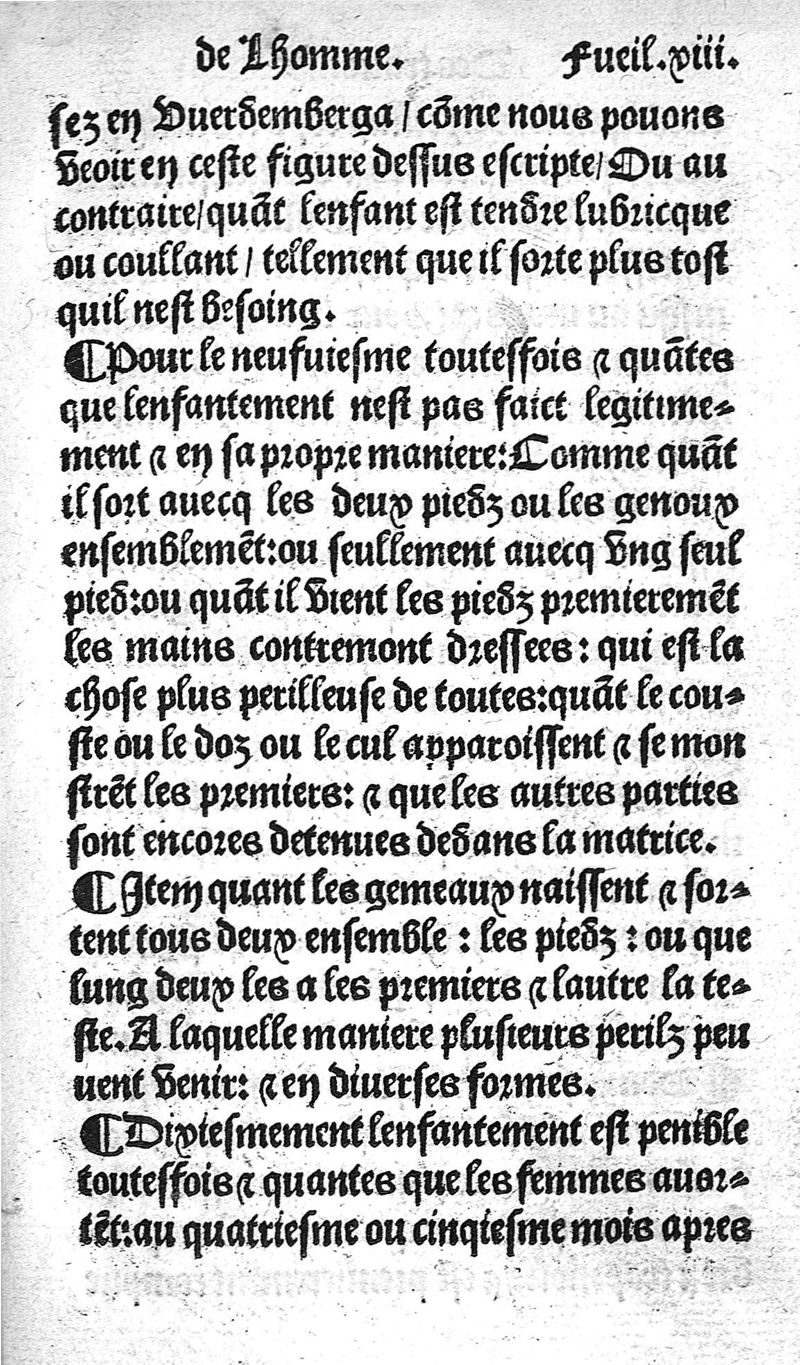 de Lhomme. Fueil.xiii.
sez en Vuerdemberga / cõme nous pouons
veoir en ceste figure dessus escripte/ Ou au
contraire/quãt lenfant est tendre lubricque
ou coullant / tellement que il sorte plus tost
quil nest besoing.
¶Pour le neufuiesme toutesfois ⁊ quãtes
que lenfantement nest pas faict legitime⸗
ment ⁊ en sa propre maniere: Comme quãt
il sort auecq les deux piedz ou les genoux
ensemblemẽt: ou seullement auecq vng seul
pied: ou quãt il vient les piedz premieremẽt
les mains contremont dressees: qui est la
chose plus perilleuse de toutes: quãt le cou⸗
ste ou le doz ou le cul apparoissent ⁊ se mon
strẽt les premiers: ⁊ que les autres parties
sont encores detenues dedans la matrice.
¶Item quant les gemeaux naissent ⁊ sor⸗
tent tous deux ensemble : les piedz : ou que
lung deux les a les premiers ⁊ lautre la te⸗
ste. A laquelle maniere plusieurs perilz peu
uent venir: ⁊ en diuerses formes.
¶Dixiesmement lenfantement est penible
toutesfois ⁊ quantes que les femmes auor⸗
tẽt: au quatriesme ou cinqiesme mois apres